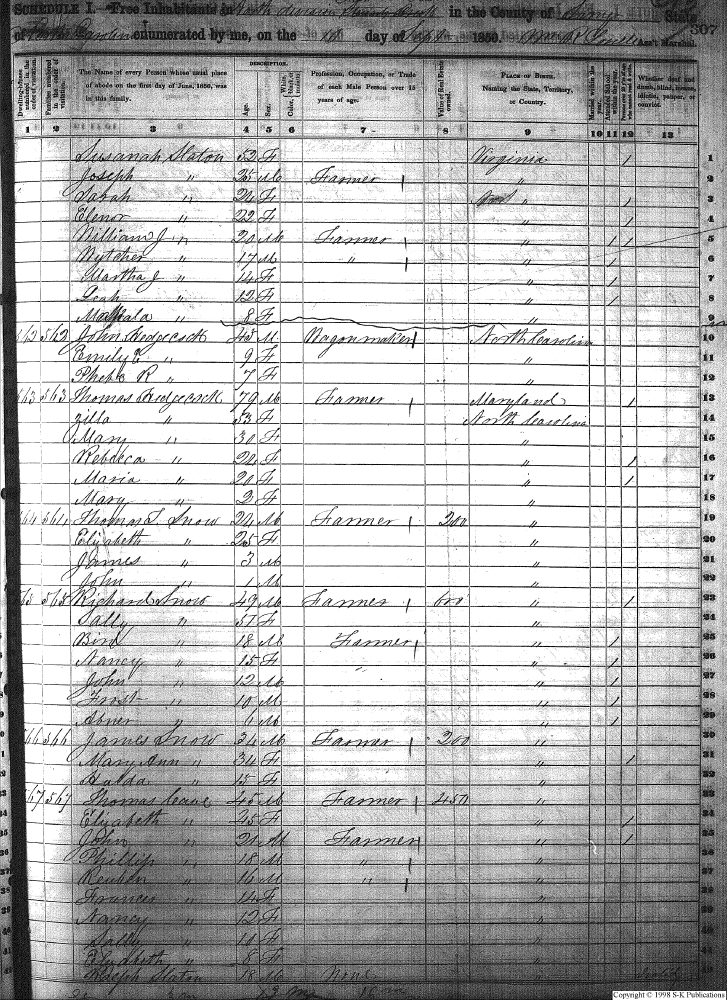 SCHEDULE I. Free Inhabitants in North division South Fork in the County of Surry State
of North Carolina enumerated by me, on the day of Sept 1850. Ass't Marshal. 307
Dwelling-houses numbered in the order of visitation.
Families numbered in the order of visitation.
The Name of every Person whose usual place of abode on the first day of June, 1850, was in this family.
DESCRIPTION.
Age.
Sex.
White, Color, black, or mulatto.
Profession, Occupation, or Trade of each Male Person over 15 years of age.
Value of Real Estate owned.
PLACE OF BIRTH. Naming the State, Territory, or Country.
Married within the year.
Attended School within the year.
Persons over 20 y'rs of age who cannot read & write.
Whether deaf and dumb, blind, insane, idiotic, pauper, or convict.
1 2 3 4 5 6 7 8 9 10 11 12 13
Susanah Slaton 52 F Virginia / 1
Joseph " 25 M Farmer / " 2
Sarah " 24 F " / 3
Elenor " 22 F " / 4
William J " 20 M Farmer / " / / 5
" 17 M " / " / 6
Martha J " 14 F " / 7
Leah " 12 F " / 8
8 F " 9
562 562 John Hedgecock 45 M Wagonmaker / North Carolina 10
Emily E " 9 F " 11
Phebe R " 7 F " 12
563 563 Thomas Hedgecock 79 M Farmer / Maryland / 13
Zilla " 53 F North Carolina 14
Mary " 30 F " 15
Rebecca " 24 F " / 16
Maria " 20 F " / 17
Mary " 2 F " 18
564 564 Thomas S. Snow 24 M Farmer / 200 " 19
Elizabeth " 25 F " 20
James " 3 M " 21
John " 1 M " 22
565 565 Richard Snow 49 M Farmer / 600 " / 23
Sally " 57 F " 24
Bird " 18 M Farmer / " / 25
Nancy " 15 F " / 26
John " 12 M " / 27
Frost " 10 M " / 28
Abner " 6 M " / 29
566 566 James Snow 34 M Farmer / 200 " 30
Mary Ann " 34 F " /
Hulda " 15 F "
567 567 Thomas Cave 45 M Farmer / 450 "
Elizabeth " 45 F " /
John " 21 M Farmer / " /
Phillip " 18 M " / "
Reuben " 16 M " / "
Frances " 14 F "
Nancy " 12 F "
Sally " 10 F "
Elizabeth " 8 F "
Ralph Slaton 18 M None "
Copyright © 1998 S-K Publications